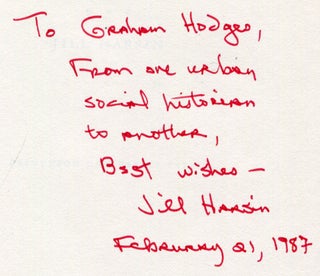 To Graham Hodges,
From one urban
social historian
to another,
Best wishes —
Jill Harsin
February 21, 1987